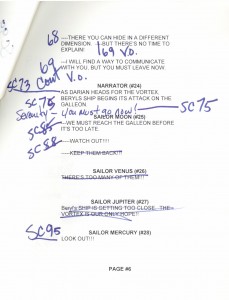 68 ----THERE YOU CAN HIDE IN A DIFFERENT
DIMENSION. I BUT THERE'S NO TIME TO
EXPLAIN! 169 V.O.
69 ---I WILL FIND A WAY TO COMMUNICATE
WITH YOU, BUT YOU MUST LEAVE NOW
SC73 Cont V.O.
NARRATOR (#24)
SC 75 AS DARIAN HEADS FOR THE VORTEX,
BERYLS SHIP BEGINS ITS ATTACK ON THE
GALLEON.
Serenity - You must go now! SC 75
SAILOR MOON (#25)
SC85 ---WE MUST REACH THE GALLEON BEFORE
IT'S TOO LATE.
SC88 ----WATCH OUT!!!!
----KEEP THEM BACK!!!
SAILOR VENUS (#26)
THERE'S TOO MANY OF THEM!!
SAILOR JUPITER (#27)
Beryl's SHIP IS GETTING TOO CLOSE, THE
VORTEX IS OUR ONLY HOPE!!
SC95 SAILOR MERCURY (#28)
LOOK OUT!!!
PAGE #6